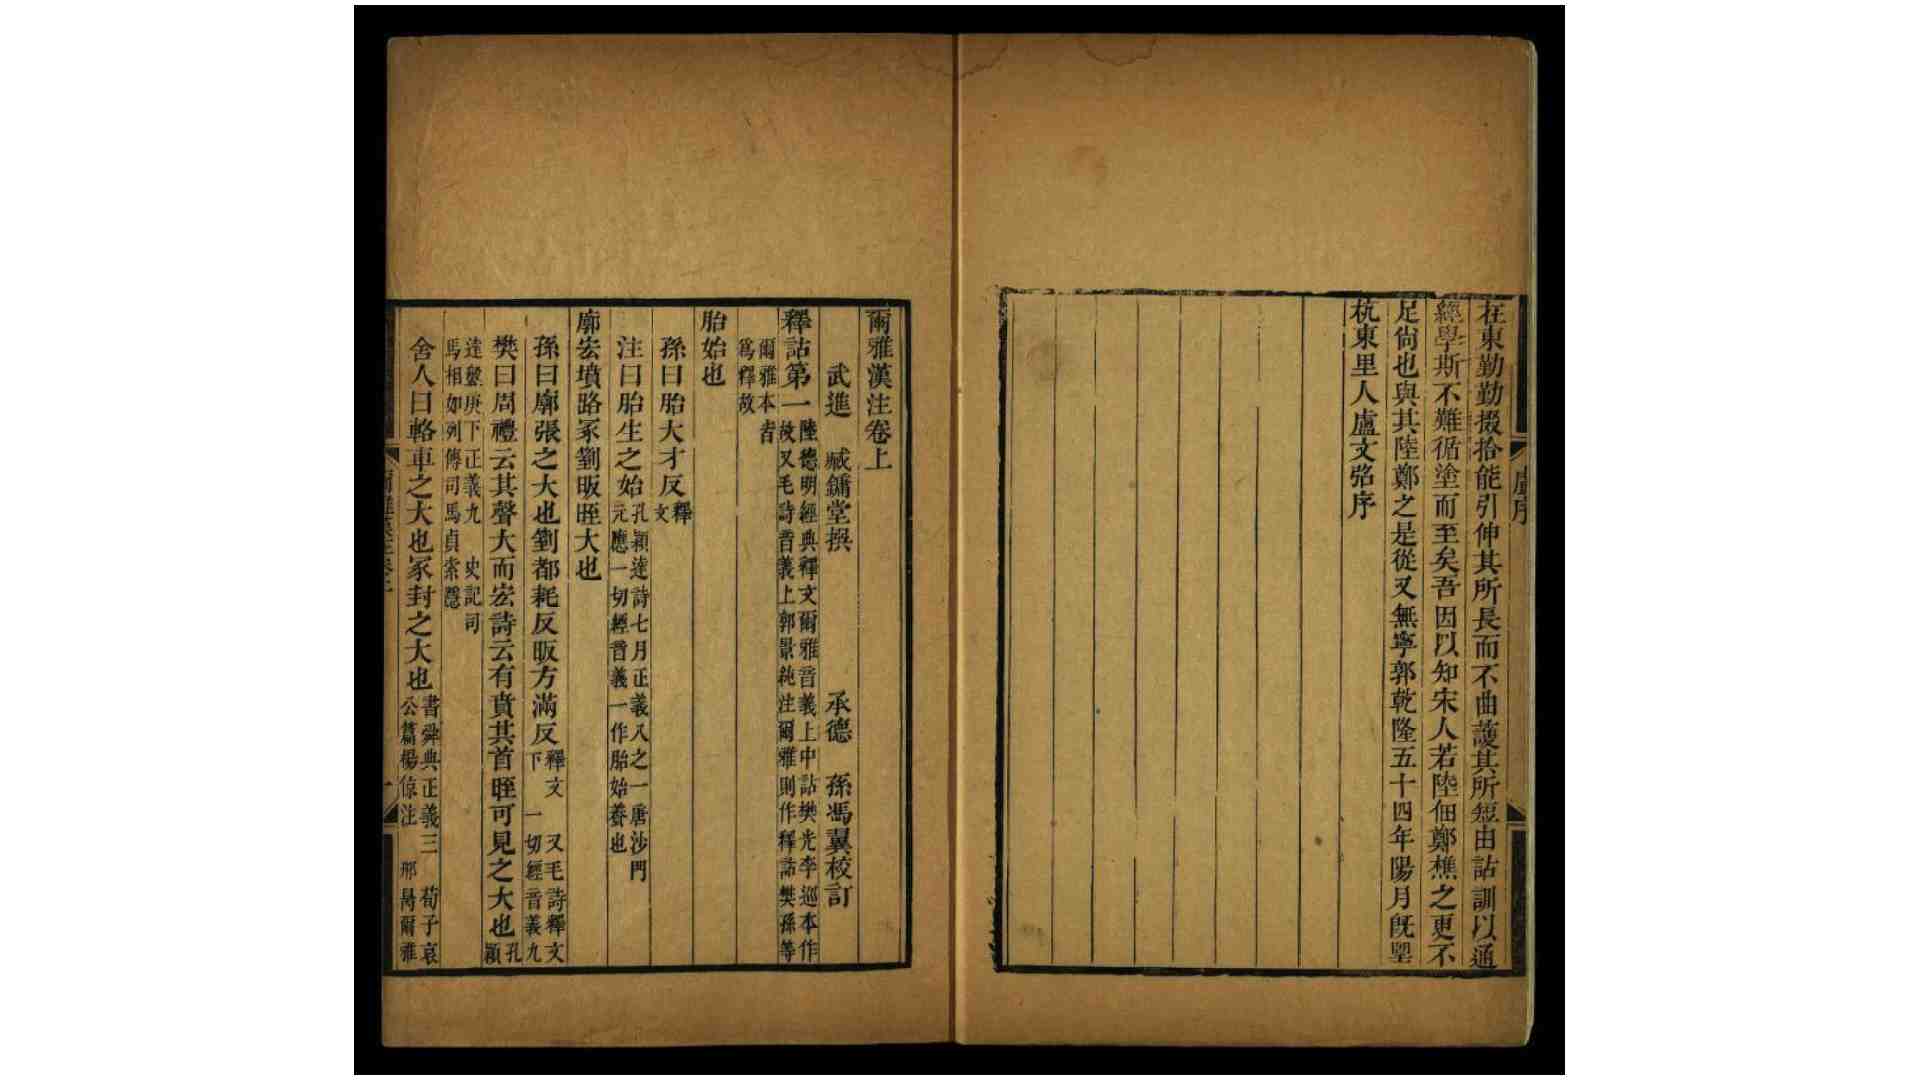 在東勤勤掇拾能引伸其所長而不曲護其所短由詁訓以通
經學斯不難循塗而至矣吾因以知宋人若陸佃鄭樵之更不
足尙也與其陸鄭之是從又無寧郭乾隆五十四年陽月旣朢
杭東里人盧文弨序
爾雅漢注卷上
武進　臧鏞堂撰　承德　孫馮翼校訂
釋詁第一陸德明經典釋文爾雅音義上中詁樊光李巡本作
故又毛詩音義上郭景純注爾雅則作釋詁樊孫等
爾雅本皆
爲釋故
胎始也
孫曰胎大才反釋
文
注曰胎生之始孔穎達詩七月正義八之一唐沙門
元應一切經音義一作胎始養也
廓宏墳路冢劉昄晊大也
孫曰廓張之大也劉都耗反昄方滿反釋文　又毛詩釋文
下　一切經音義九
樊曰周禮云其聲大而宏詩云有賁其首晊可見之大也孔
穎
達盤庚下正義九　史記司
馬相如列傳司馬貞索隱
舍人曰輅車之大也冢封之大也書舜典正義三　荀子哀
公篇楊倞注　邢昺爾雅